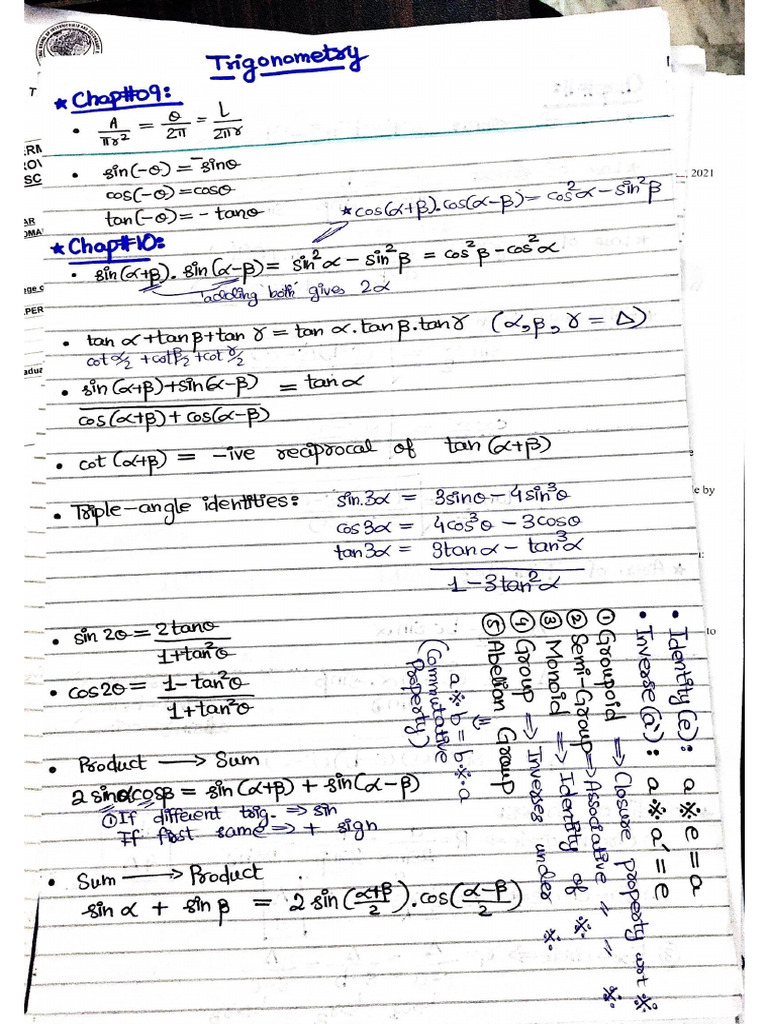 Trigonometry
★ Chap#09:
• A/πr² = θ/2π = L/2πr
• sin(-θ) = -sinθ
cos(-θ) = cosθ
tan(-θ) = - tanθ
★ cos(α+β).cos(α-β) = cos²α - sin²β
★ Chap#10:
• sin(α+β). sin(α-β) = sin²α - sin²β = cos²β - cos²α
adding both gives 2α
• tan α + tan β + tan γ = tan α. tan β. tan γ (α, β, γ = Δ)
cot α/2 + cot β/2 + cot γ/2
• sin(α+β)+sin(α-β) / cos(α+β) + cos(α-β) = tan α
• cot (α+β) = -ive reciprocal of tan (α+β)
• Triple-angle identities: sin.3α = 3sinθ - 4sin³θ
cos3α = 4cos³θ - 3cosθ
tan3α = 3tanα - tan³α / 1 - 3tan²α
• sin 2θ = 2tanθ / 1+tan²θ
• cos2θ = 1 - tan²θ / 1+tan²θ
• Product → Sum
2 sinαcosβ = sin(α+β) + sin(α-β)
① If different trig. ⇒ sin
If first same ⇒ + sign
• Sum → Product
sin α + sin β = 2 sin(α+β/2).cos(α-β/2)
• Identity (e): a ※ e = a
• Inverse (a'): a ※ a' = e
① Groupoid ⇒ Closure property wrt ※
② Semi-Group ⇒ Associative " " ※.
③ Monoid ⇒ Identity of ※.
④ Group ⇒ Inverses under ※.
⑤ Abelian Group
⇓
a ※ b = b ※ a
(Commutative
Property)
2021
e by
to